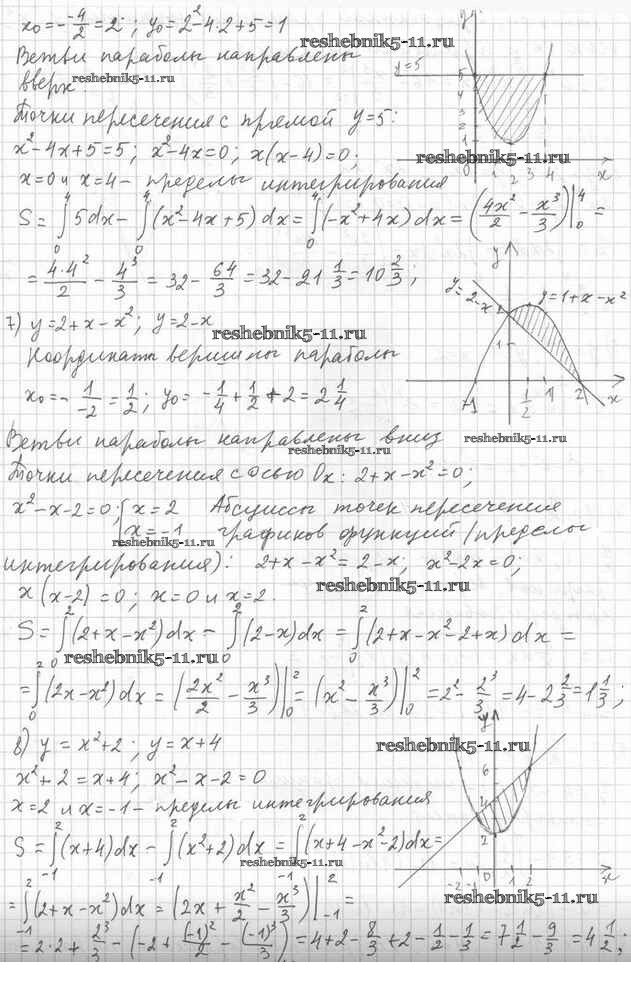 x₀=-\frac{-4}{2}=2; y₀=2²-4·2+5=1
reshebnik5-11.ru
Ветви параболы направлены
y=5
reshebnik5-11.ru
вверх
Точки пересечения с прямой y=5:
x²-4x+5=5; x²-4x=0; x(x-4)=0;
reshebnik5-11.ru
x=0 и x=4 - пределы интегрирования
S=∫₀⁴5dx-∫₀⁴(x²-4x+5)dx=∫₀⁴(-x²+4x)dx=(\frac{4x²}{2}-\frac{x³}{3})|₀⁴=
=\frac{4·4²}{2}-\frac{4³}{3}=32-\frac{64}{3}=32-21\frac{1}{3}=10\frac{2}{3};
y=2-x
y=1+x-x²
7) y=2+x-x²; y=2-x
reshebnik5-11.ru
Координаты вершины параболы
x₀=-\frac{1}{-2}=\frac{1}{2}; y₀=-\frac{1}{4}+\frac{1}{2}+2=2\frac{1}{4}
Ветви параболы направлены вниз
reshebnik5-11.ru
reshebnik5-11.ru
Точки пересечения с осью Ox: 2+x-x²=0;
x²-x-2=0; x=2 Абсциссы точек пересечения
x=-1 графиков функций (пределы
reshebnik5-11.ru
интегрирования): 2+x-x²=2-x; x²-2x=0;
reshebnik5-11.ru
x(x-2)=0; x=0 и x=2.
S=∫₀²(2+x-x²)dx-∫₀²(2-x)dx=∫₀²(2+x-x²-2+x)dx=
reshebnik5-11.ru
=∫₀²(2x-x²)dx=(\frac{2x²}{2}-\frac{x³}{3})|₀²=(x²-\frac{x³}{3})|₀²=2²-\frac{2³}{3}=4-2\frac{2}{3}=1\frac{1}{3};
8) y=x²+2; y=x+4
reshebnik5-11.ru
x²+2=x+4; x²-x-2=0
x=2 и x=-1 - пределы интегрирования
S=∫₋₁²(x+4)dx-∫₋₁²(x²+2)dx=∫₋₁²(x+4-x²-2)dx=
reshebnik5-11.ru
=∫₋₁²(2+x-x²)dx=(2x+\frac{x²}{2}-\frac{x³}{3})|₋₁²=
reshebnik5-11.ru
=2·2+\frac{2³}{3}-(-2+\frac{(-1)²}{2}-\frac{(-1)³}{3})=4+2-\frac{8}{3}+2-\frac{1}{2}-\frac{1}{3}=7\frac{1}{2}-\frac{9}{3}=4\frac{1}{2};